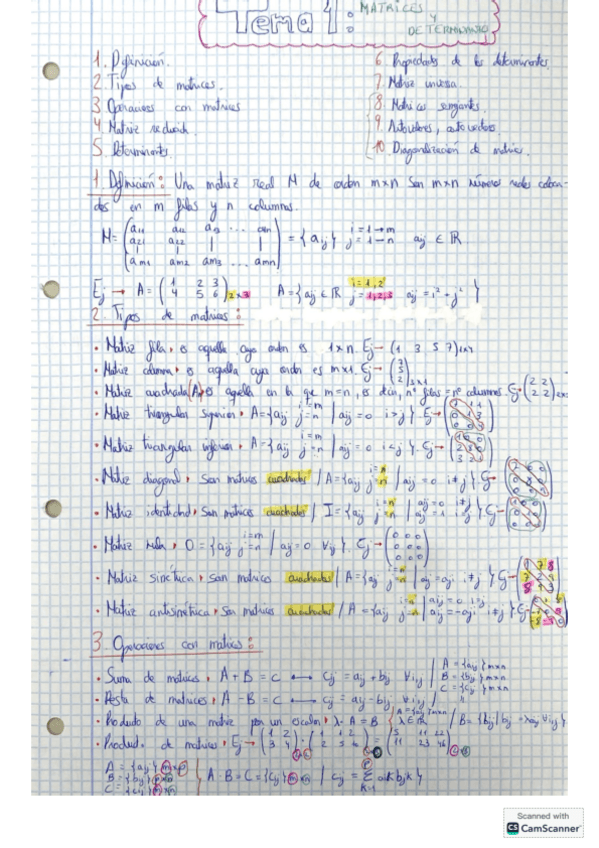 Tema 1: MATRICES Y DETERMINANTES
1. Definición.
2. Tipos de matrices.
3 Operaciones con matrices
4 Matriz reducida.
5. Determinantes.
6 Propiedades de los determinantes.
7. Matriz inversa.
8. Matrices semejantes.
9. Autovalores, autovectores
10. Diagonalización de matrices.
1. Definición: Una matriz real M de orden m×n son m×n números reales coloca-
dos en m filas y n columnas.
M = (a11 a12 a13 ... a1n
a21 a22
am1 am2 am3 ... amn) = {aij} i=1→m j=1→n aij ∈ ℝ
Ej → A = (1 2 3
4 5 6) 2×3 A = {aij ∈ ℝ i=1,2 j=1,2,3 aij = i² + j²}
2. Tipos de matrices:
• Matriz fila → es aquella cuyo orden es 1×n. Ej → (1 3 5 7)1×4
• Matriz columna → es aquella cuyo orden es m×1. Ej →
• Matriz cuadrada (A) → es aquella en la que m=n, es decir, nº filas = nº columnas Ej → (2 2
2 2) 2×2
• Matriz triangular superior → A = {aij i=m j=n | aij = 0 i>j} Ej →
• Matriz triangular inferior → A = {aij i=m j=n | aij = 0 i<j} Ej →
• Matriz diagonal → Son matrices cuadradas / A = {aij i=n j=n | aij = 0 i≠j} Ej →
• Matriz identidad → Son matrices cuadradas / I = {aij i=n j=n | aij = 0 i≠j aij = 1 i=j} Ej →
• Matriz nula → O = {aij i=m j=n | aij = 0 ∀ij}. Ej → (0 0 0
0 0 0
0 0 0)
• Matriz simétrica → son matrices cuadradas / A = {aij i=n j=n | aij = aji i≠j} Ej →
• Matriz antisimétrica → Son matrices cuadradas / A = {aij i=n j=n | aij = 0 i=j aij = -aji i≠j} Ej →
3. Operaciones con matrices:
• Suma de matrices → A + B = C ↔ cij = aij + bij ∀ij / A = {aij} m×n B = {bij} m×n C = {cij} m×n
• Resta de matrices → A - B = C ↔ cij = aij - bij ∀ij / "
• Producto de una matriz por un escalar → λ·A = B { A = {aij} m×n λ ∈ ℝ / B = {bij | bij = λaij ∀ij}
• Producto de matrices → Ej → (1 2
3 4) · (1 1 2
2 5 6) = (5 11 22
11 23 46)
A = {aij} m×p
B = {bij} p×n
C = {cij} m×n
A·B = C = {cij} m×n | cij = Σ k=1 p aik bjk}
Scanned with
CS CamScanner